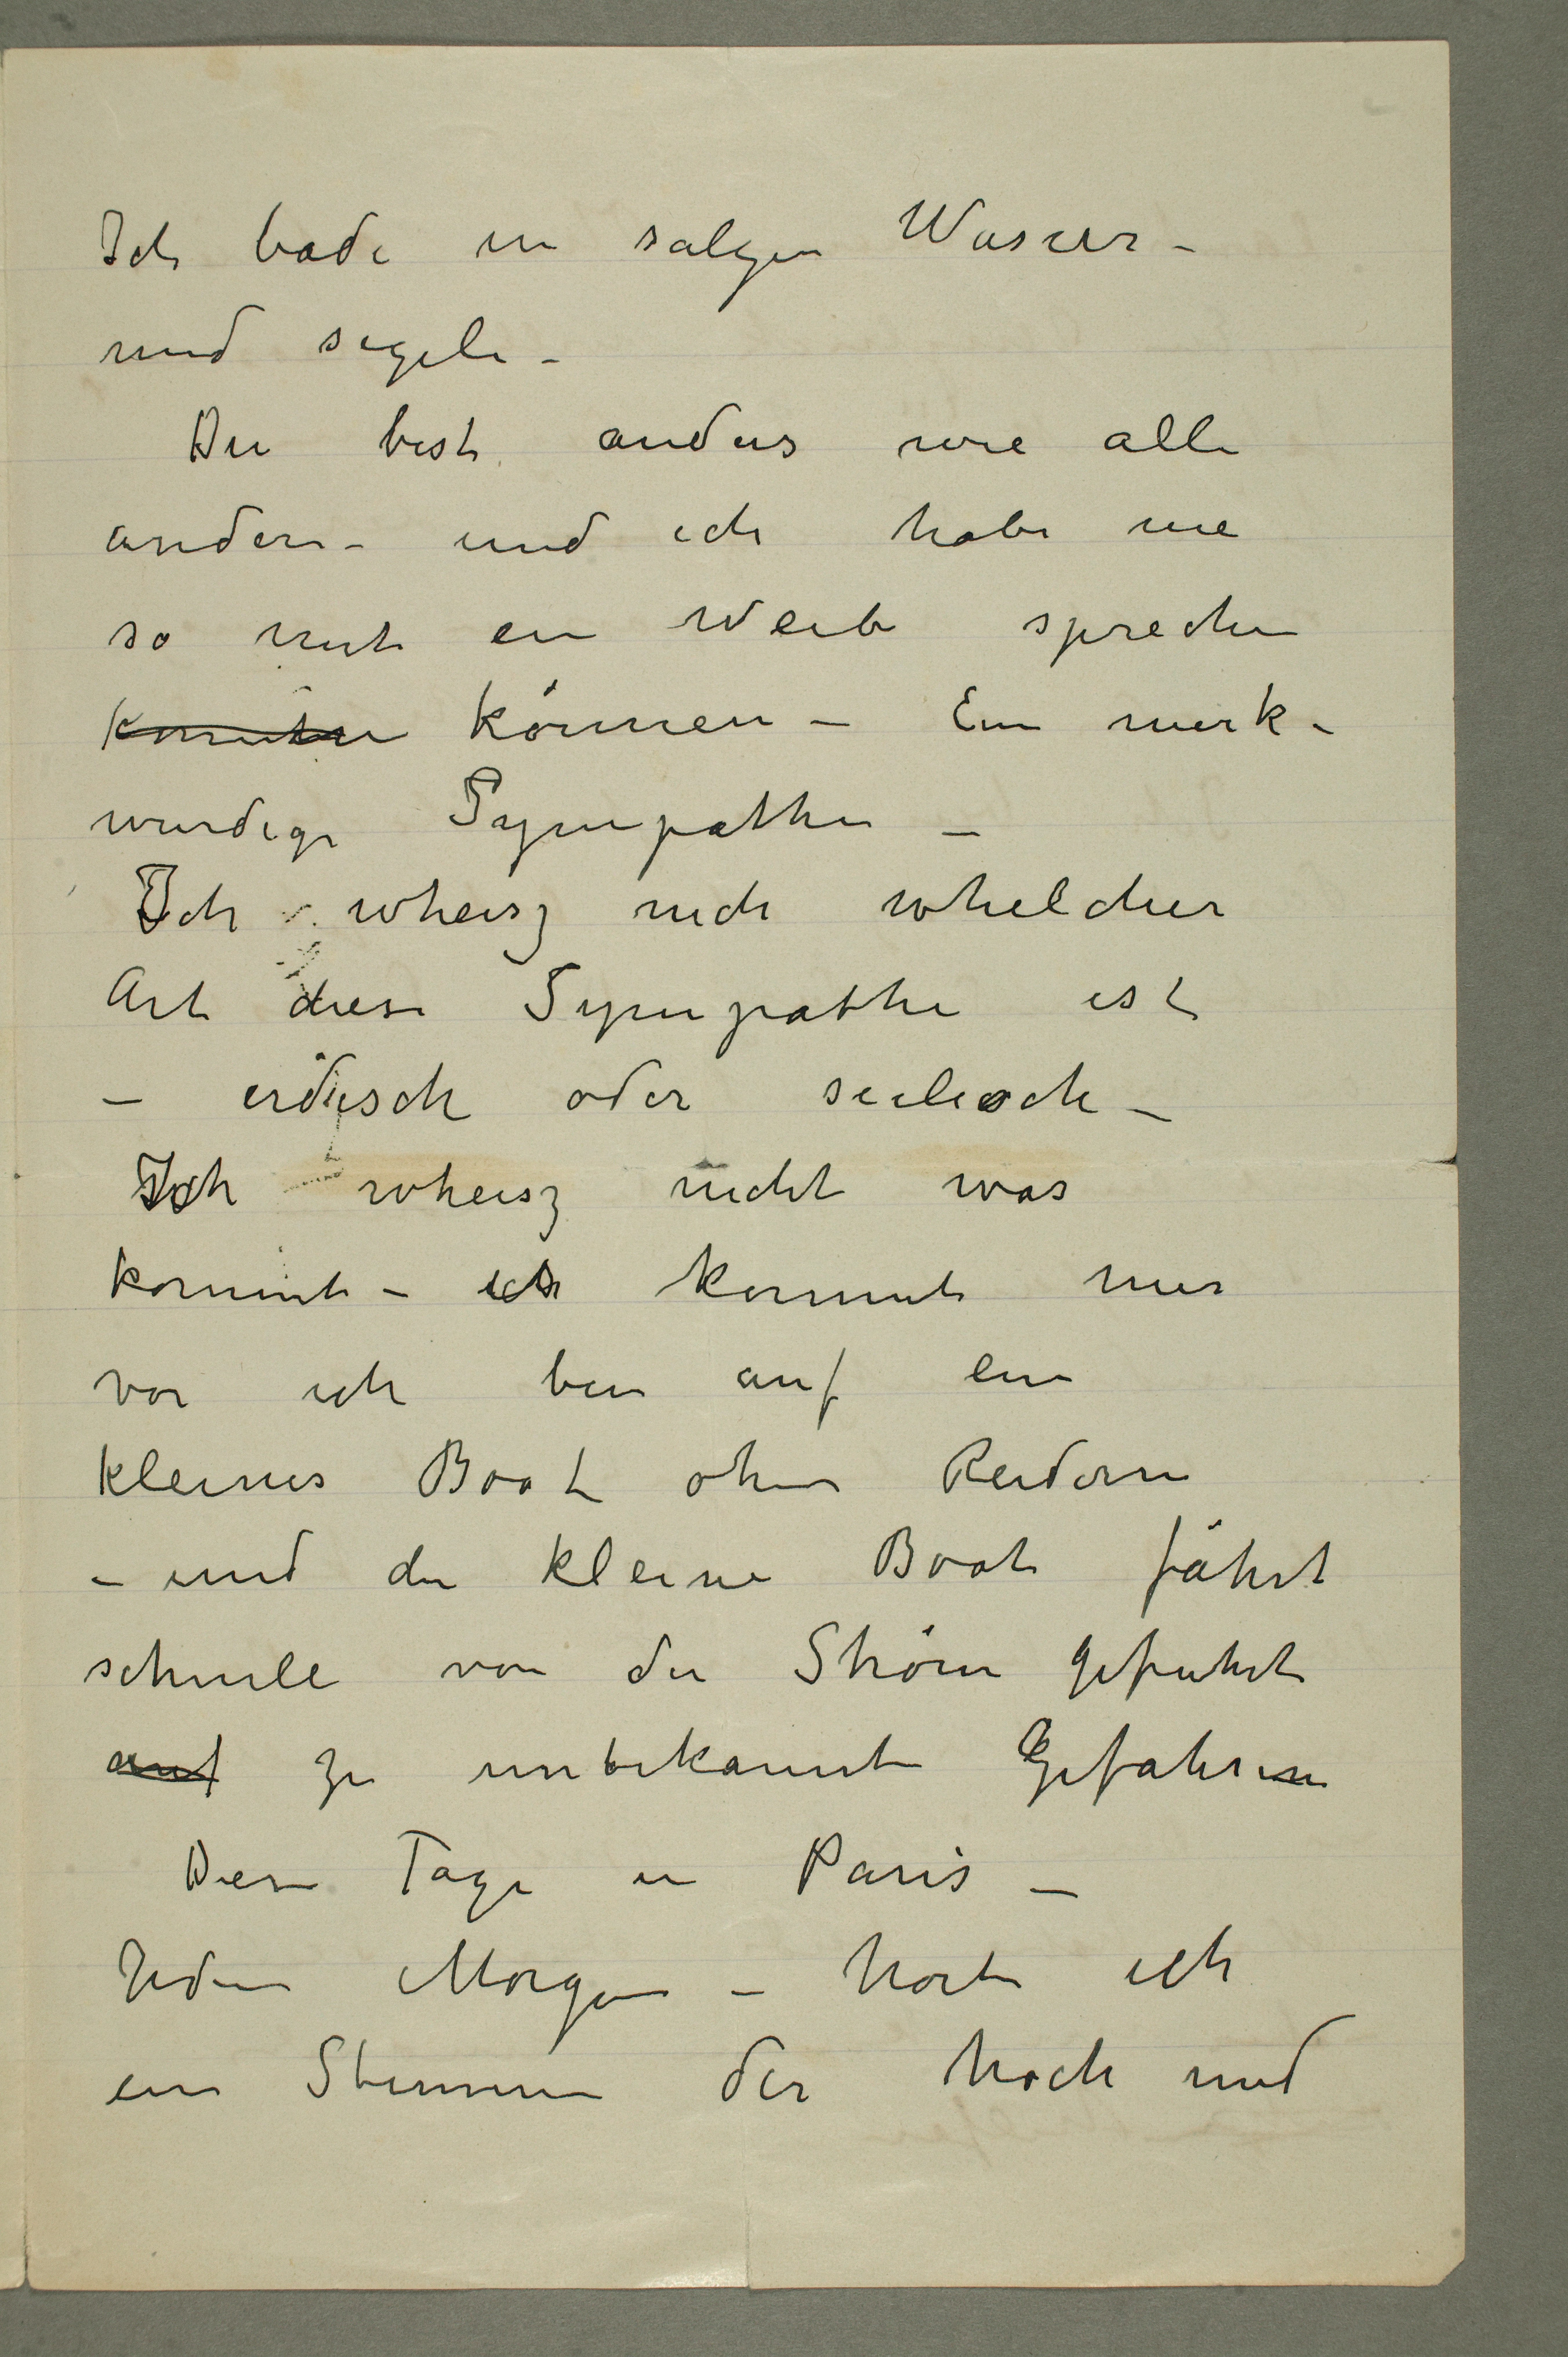 Ich bade in salzen Wasser –
und segele –
Du bist anders wie alle
andere – und ich habe nie
so mit ein Weib sprechen
konnten können – Ein merk-
wurdige Sympathie –
Ich wheisz nich whelcher
Art diese Sympathie ist
– erdisch oder seelisch –
Ich wheisz nicht was
kommt – ich kommt mir
vor ich bin auf ein
kleines Boot ohne Reidern
– und die kleine Boot fährt
schnele von der Ström gefuhrt
auf zu unbekannte Gefahren
Diese Tage in Paris –
Jeden Morgen – horte ich
ein Stimme der hoch und